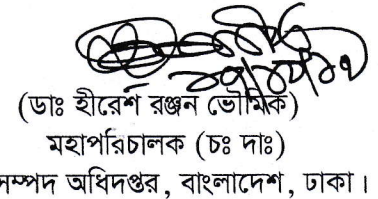 (ডাঃ হীরেশ রঞ্জন ভৌমিক)
মহাপরিচালক (চঃ দাঃ)
সম্পদ অধিদপ্তর, বাংলাদেশ, ঢাকা।